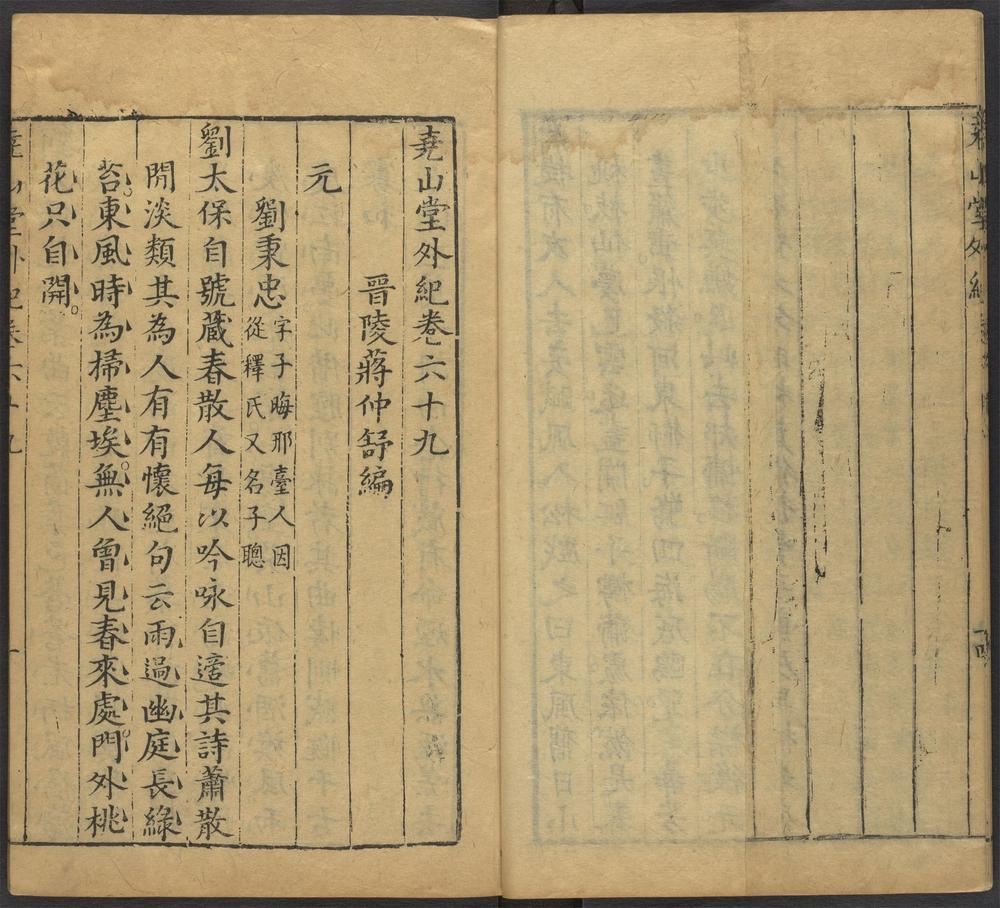 堯山堂外紀
堯山堂外紀卷六十九
晉陵蔣仲舒編
元
劉秉忠字子晦邢臺人因
從釋氏又名子聰
劉太保自號藏春散人每以吟咏自適其詩蕭散
閒淡類其為人有有懷絕句云雨過幽庭長綠
苔東風時為掃塵埃無人曾見春來處門外桃
花只自開
堯山堂外紀卷六十九